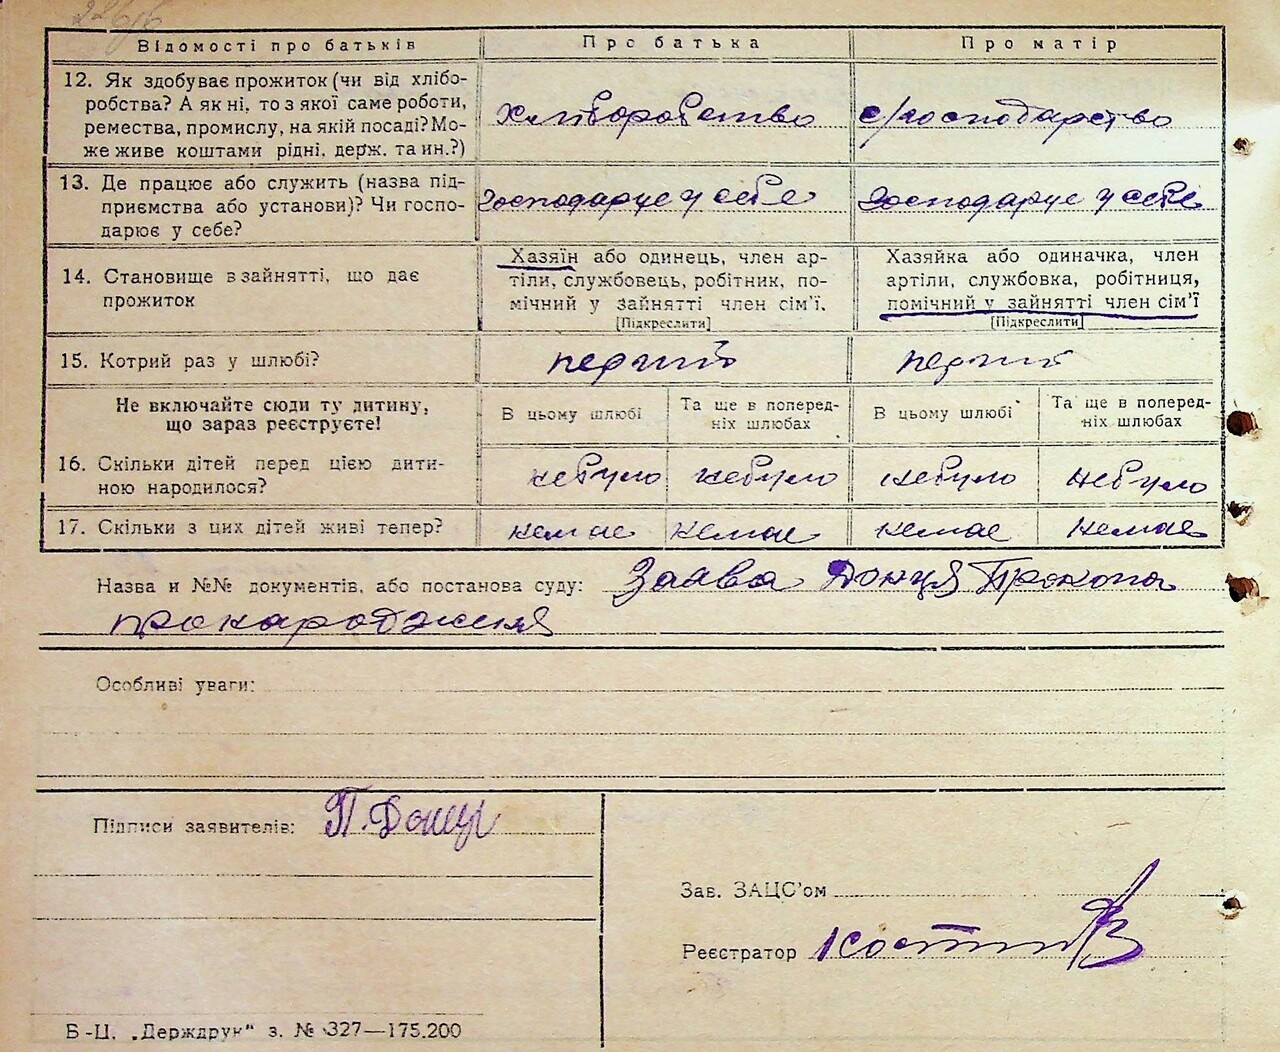 Відомості про батьків Про батька Про матір
12. Як здобуває прожиток (чи від хлібо-
робства? А як ні, то з якої саме роботи,
ремества, промислу, на якій посаді? Мо-
же живе коштами рідні, держ. та ин.?)
Хліборобство с/господарство
13. Де працює або служить (назва під-
приємства або установи)? Чи госпо-
дарює у себе?
Господарує у себе Господарує у себе
14. Становище в зайнятті, що дає
прожиток
Хазяїн або одинець, член ар-
тіли, службовець, робітник, по-
мічний у зайнятті член сім'ї.
[Підкреслити]
Хазяйка або одиначка, член
артіли, службовка, робітниця,
помічний у зайнятті член сім'ї
[Підкреслити]
15. Котрий раз у шлюбі? перший перший
Не включайте сюди ту дитину,
що зараз реєструєте!
В цьому шлюбі
Та ще в поперед-
ніх шлюбах
В цьому шлюбі
Та ще в поперед-
ніх шлюбах
16. Скільки дітей перед цією дити-
ною народилося?
небуло небуло небуло небуло
17. Скільки з цих дітей живі тепер? немае немае немае немае
Назва и №№ документів, або постанова суду: Заява Донця Прокопа
про народження
Особливі уваги:
Підписи заявителів: П. Донець
Зав. ЗАЦС'ом
Реєстратор
Б-Ц. „Держдрук“ з. № 327—175.200